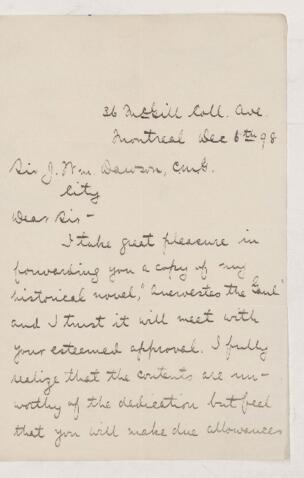 36 McGill Coll. Ave.
Montreal Dec 6th 98
Sir J. Wm. Dawson, C.M.G.
City
Dear Sir -
I take great pleasure in
forwarding you a copy of my
historical novel, "Anerœstes the Gaul"
and I trust it will meet with
your esteemed approval. I fully
realize that the contents are un-
worthy of the dedication but feel
that you will make due allowances